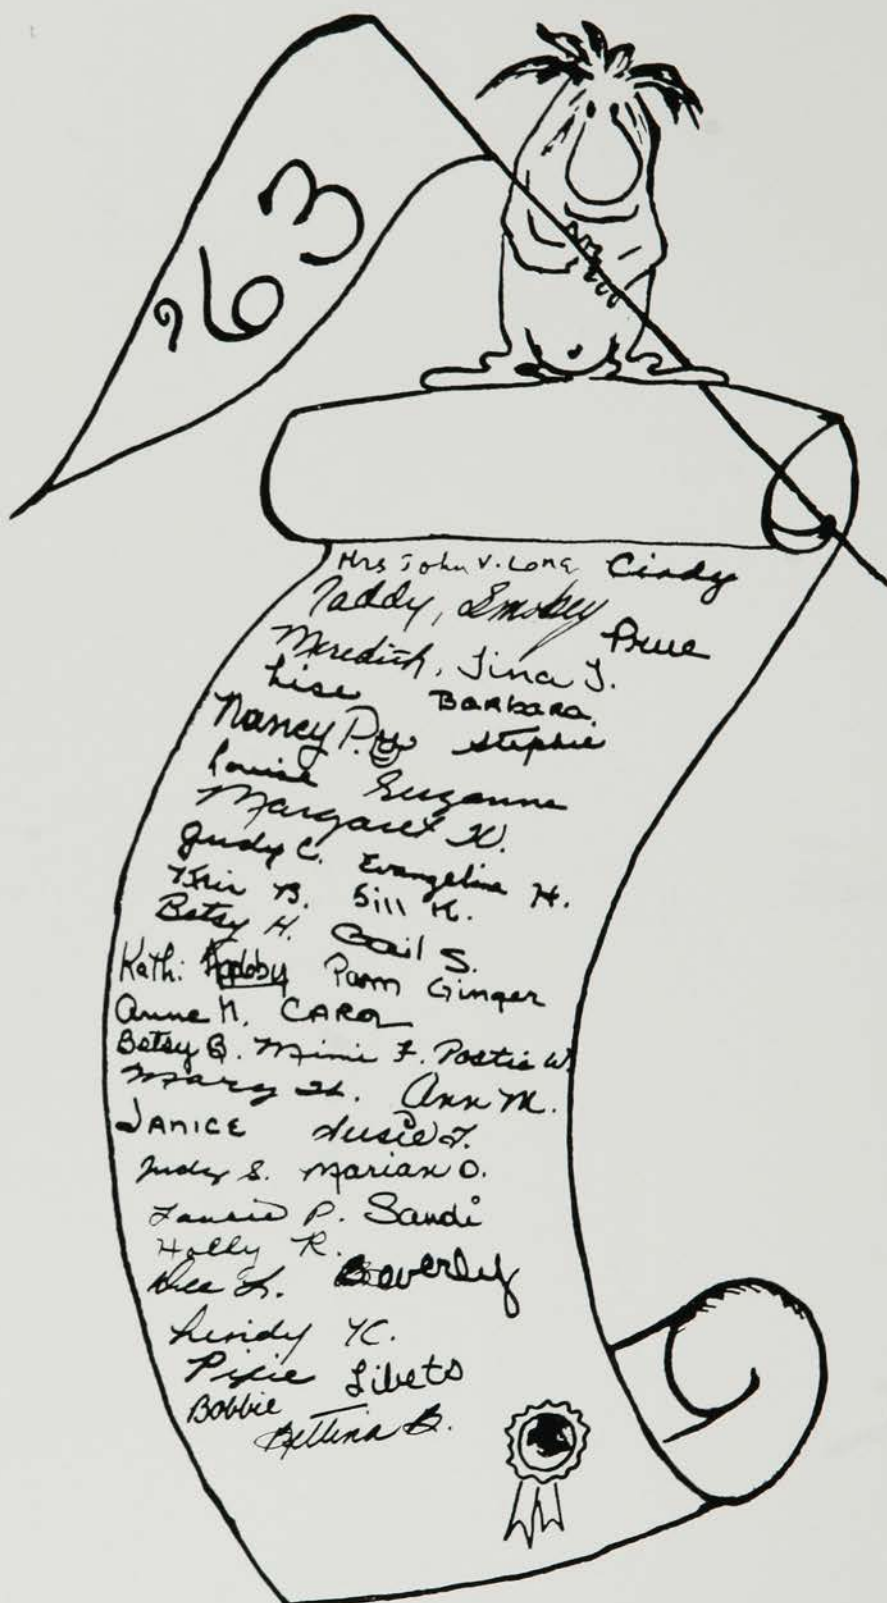 '63
Mrs John V. Long Cindy
Taddy, Smokey
Prue
Meredith, Tina J.
Lise Barbara
Nancy P. Stephie
Louise Suzanne
Margaret W.
Judy C. Evangeline H.
Kris B. Bill K.
Betsy H. Gail S.
Kathi Pam Ginger
Anne N. CAROL
Betsy B. Mimi F. Postie W.
Mary H. Ann M.
JANICE Susie J.
Judy S. Marian O.
Laurie P. Sandi
Holly R.
Dee L. Beverly
Lindy K.
Pixie
Bobbie
Bettina B.